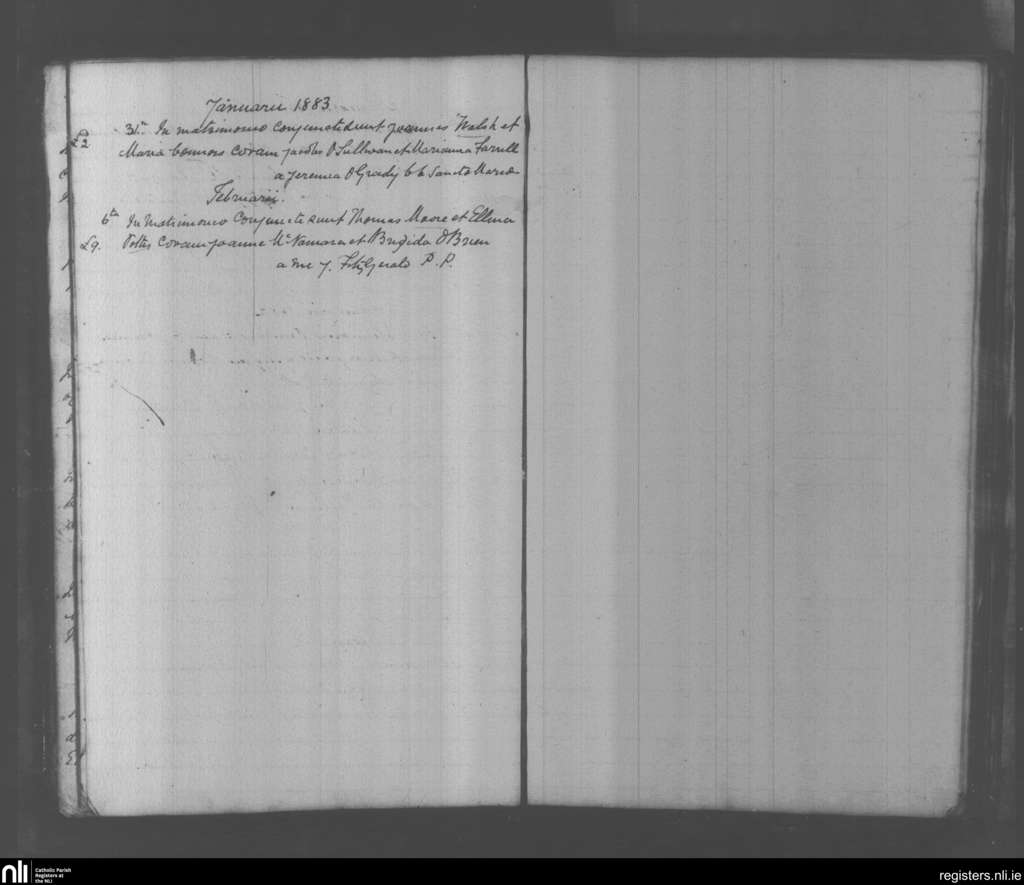 Januarii 1883
31a In matrimonio conjuncti sunt Joannes Walsh et
£2 Maria Connors coram Jacobo O Sullivan et Marianna Farrell
a Jeremia O Grady C C Sancta Maria
Februarii.
6ta In Matrimonio Conjuncti sunt Thomas Moore et Ellena
£9. Coram Joanne McNamara et Brigida O Brien
a me J. FitzGerald P.P.
nli
Catholic Parish
Registers at
the NLI
registers.nli.ie